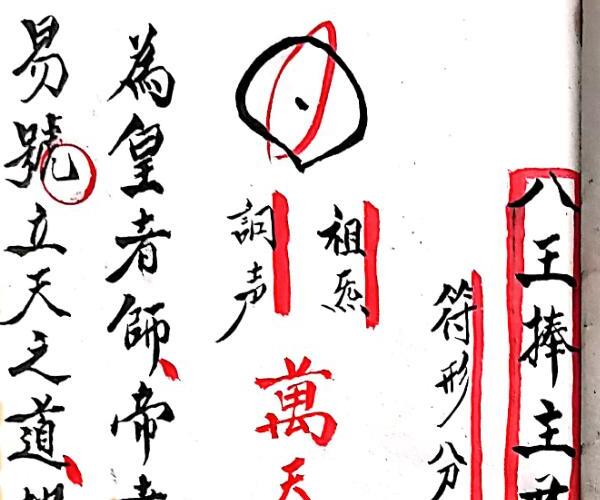 八王捧主
符形分
祖炁
詞声
萬天
為皇者師帝者
易號立天之道